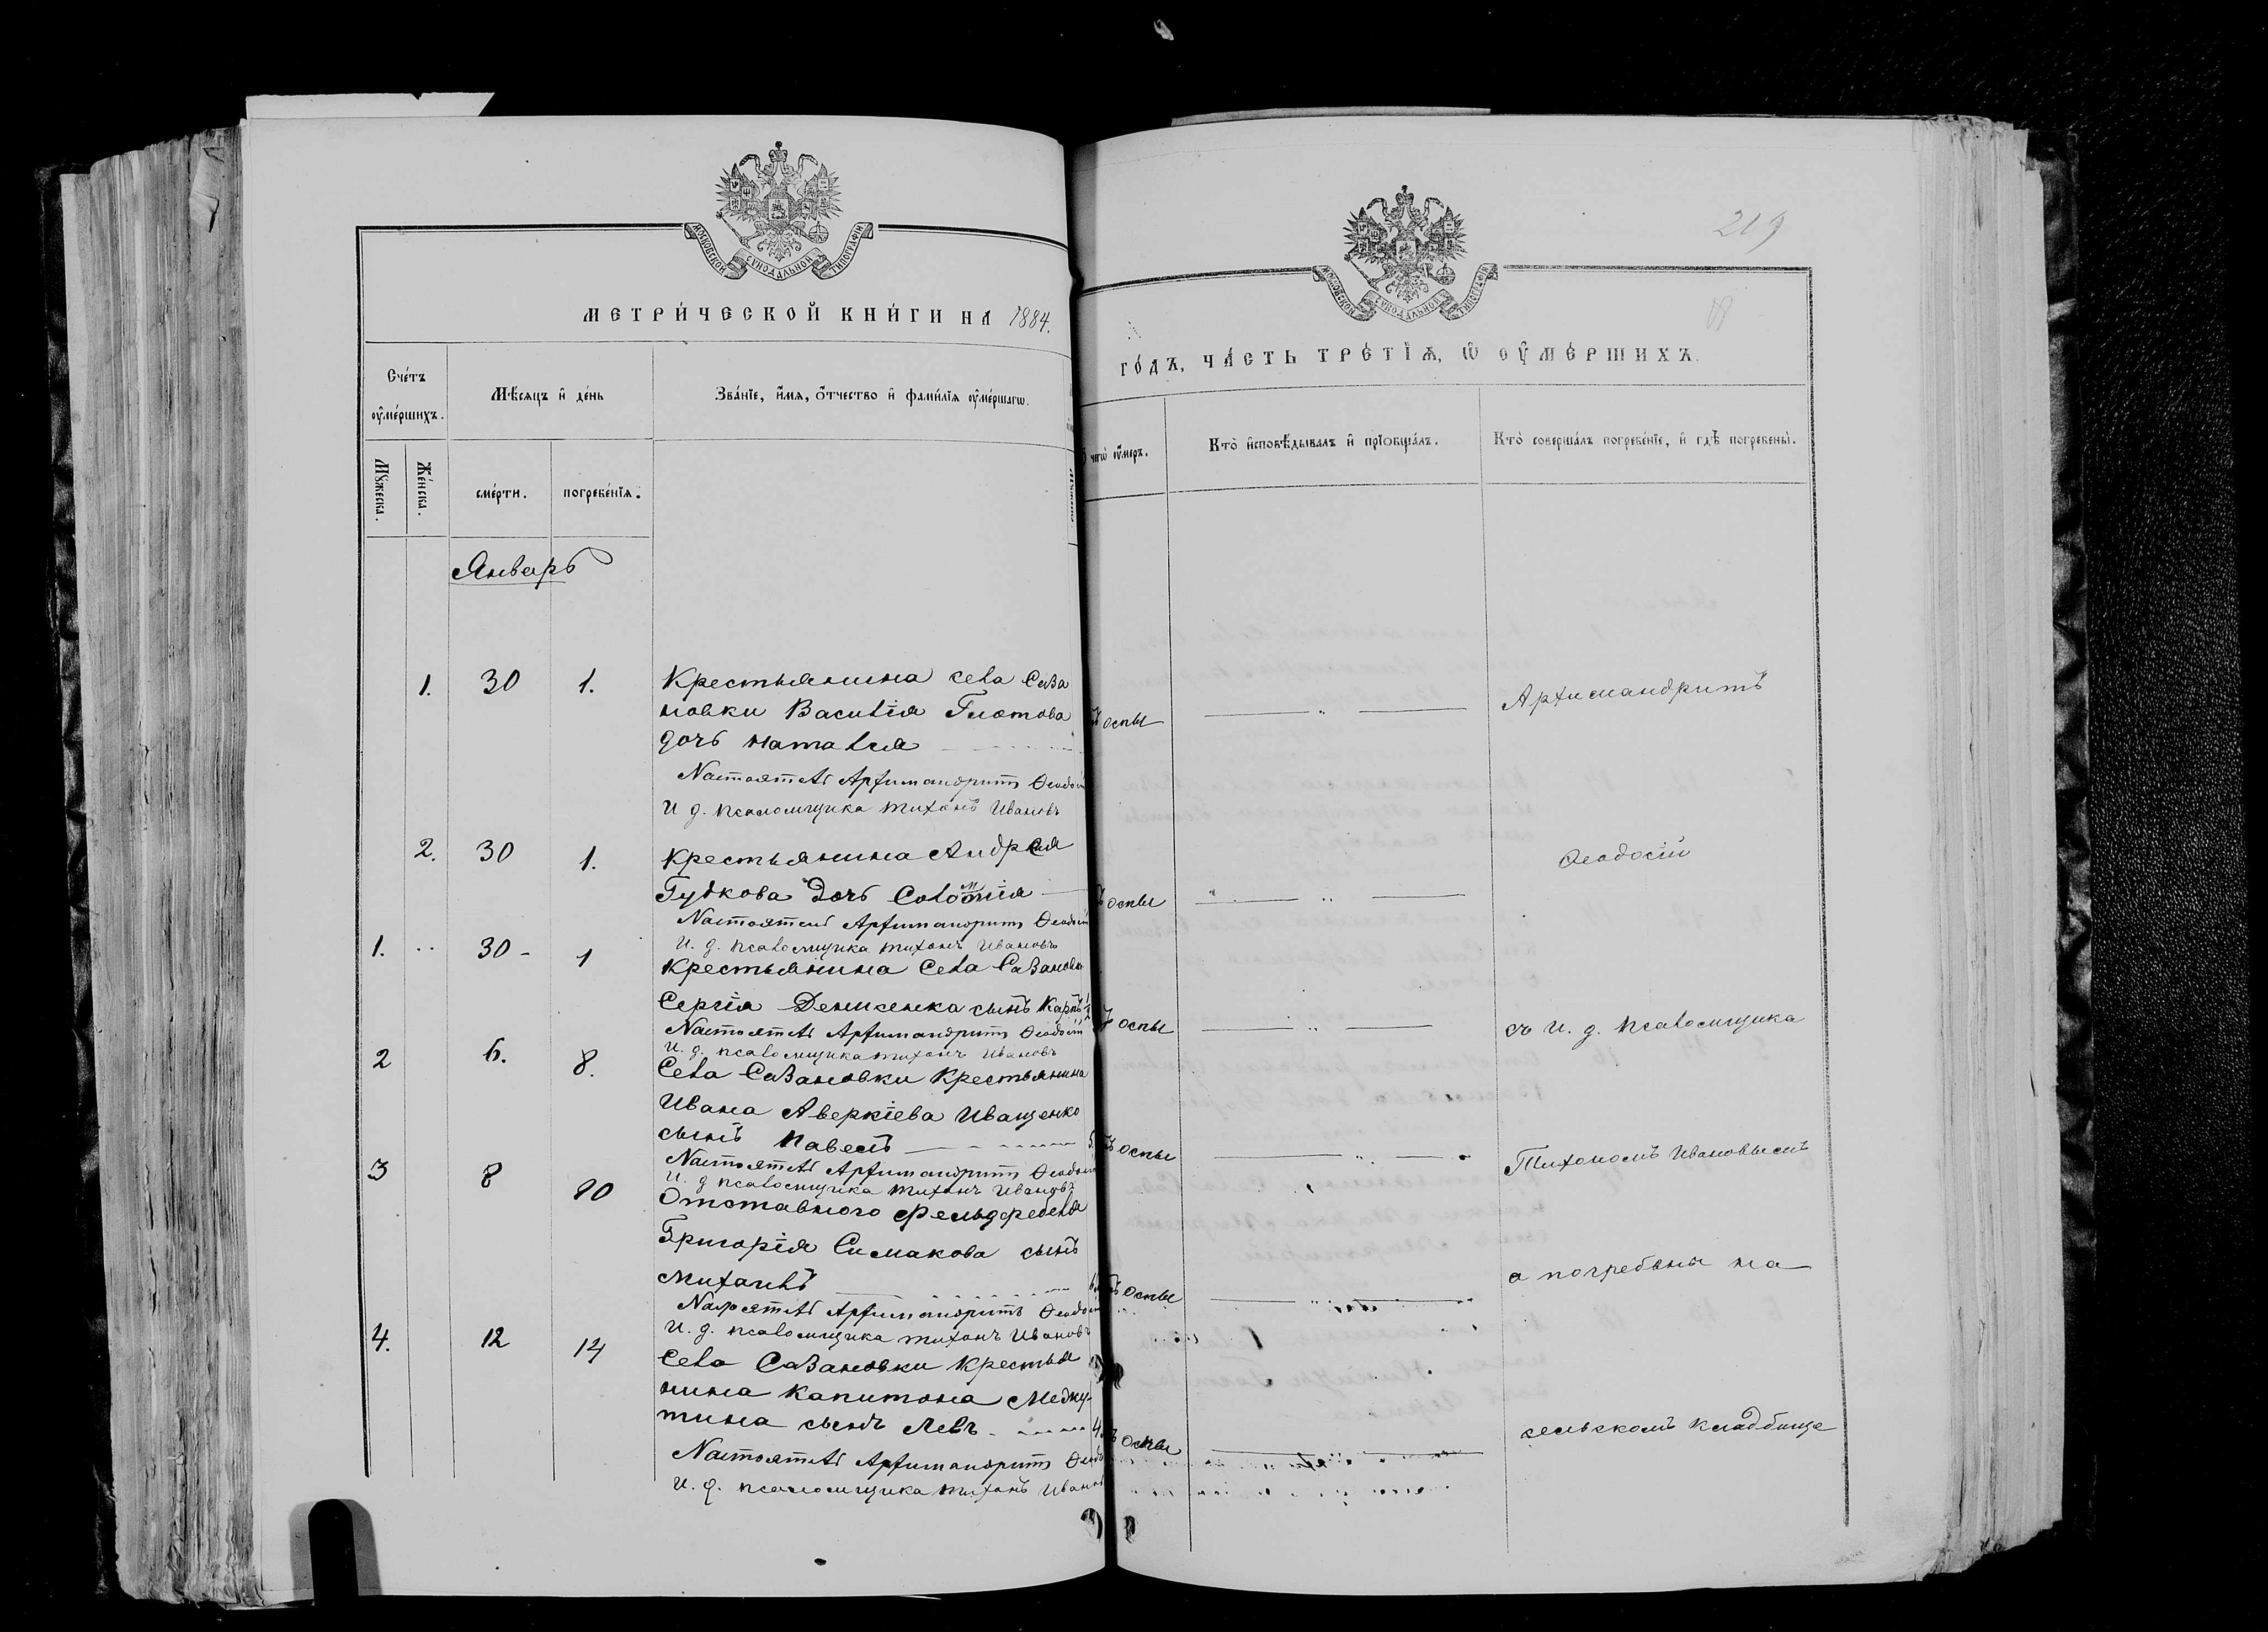 МОСКОВСКОЙ СѴНОДАЛЬНОЙ ТИПОГРАФІИ
МЕТРИ́ЧЕСКОЙ КНИ́ГИ НА 1884.
Сче́тъ ᲂу҆ме́ршихъ.
Мѣ́сяцъ и҆ де́нь
Зва́нїе, и҆́мя, ѻ҆́тчество и҆ фами́лїя ᲂу҆ме́ршагѡ.
Мꙋ́жеска.
Же́нска.
сме́рти.
погребе́нїя.
Январь
1. 30 1. Крестьянина села Саза
новки Василія Глотова
дочь Наталія
Настоятель Архимандритъ Ѳеодосій
И. д. псаломщика Тихонъ Ивановъ
2. 30 1. Крестьянина Андрея
Гудкова дочь Соломнія
Настоятель Архимандритъ Ѳеодосій
И. д. псаломщика Тихонъ Ивановъ
1. .. 30 - 1 Крестьянина села Сазановки
Сергія Денисенка сынъ Карпъ
Настоятель Архимандритъ Ѳеодосій
И. д. псаломщика Тихонъ Ивановъ
2 6. 8. Села Сазановки крестьянина
Ивана Аверкіева Иващенко
сынъ Павелъ
Настоятель Архимандритъ Ѳеодосій
И. д. псаломщика Тихонъ Ивановъ
3 8 10 Отставного фельдфебеля
Григорія Симакова сынъ
Михаилъ
Настоятель Архимандритъ Ѳеодосій
И. д. псаломщика Тихонъ Ивановъ
4. 12 14 Села Сазановки крестья
нина Капитона
сынъ Левъ 4.
Настоятель Архимандритъ Ѳеодо
И. д. псаломщика Тихонъ Иванов
219
МОСКОВСКОЙ СѴНОДАЛЬНОЙ ТИПОГРАФІИ
ГО́ДЪ, ЧА́СТЬ ТРЕ́ТЇѦ, Ѡ҆ ОУ҆МЕ́РШИХЪ.
чегѡ̀ ᲂу҆́меръ.
Кто̀ и҆сповѣ́дывалъ и҆ прїобща́лъ.
Кто̀ соверша́лъ погребе́нїе, и҆ гдѣ̀ погребены̀.
оспы
Архимандритъ
оспы
Ѳеодосій
оспы
съ И. д. псаломщика
оспы
Тихономъ Ивановымъ
оспы
а погребены на
оспы
сельскомъ кладбище